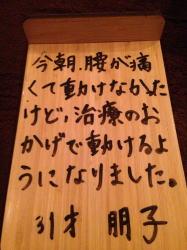 今朝、腰が痛
くて動けなかた
けど、治療のお
かげで動けるよ
うになりました。
31才 朋子